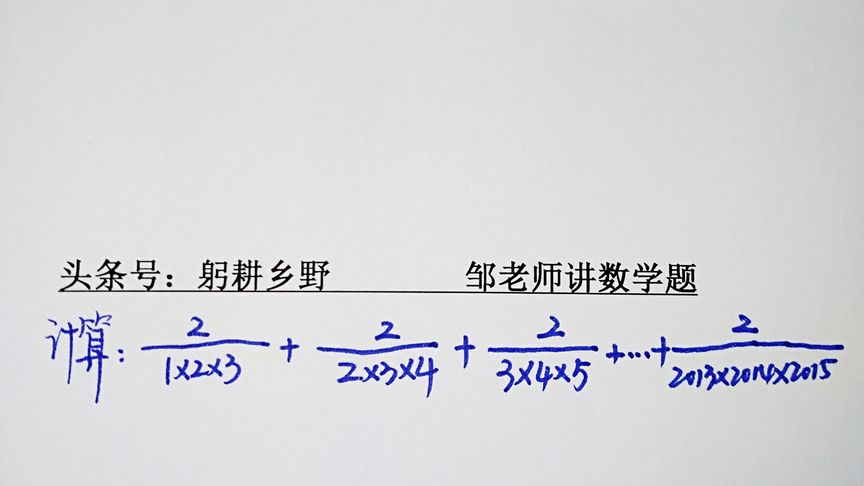 头条号：躬耕乡野 邹老师讲数学题
计算：2/(1×2×3) + 2/(2×3×4) + 2/(3×4×5) +…+ 2/(2013×2014×2015)